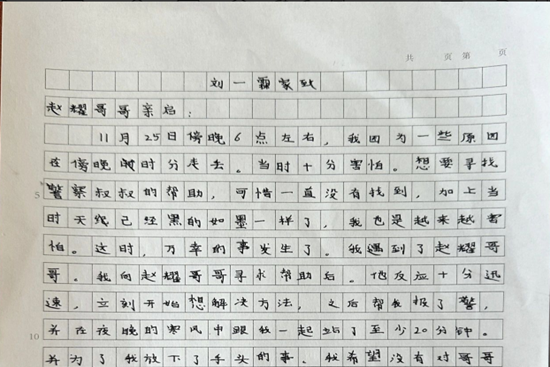 共 页 第 页
刘一霏家致
赵耀哥哥亲启:
11月25日傍晚6点左右,我因为一些原因
在傍晚时分走丢。当时十分害怕。想要寻找
5 警察叔叔的帮助,可惜一直没有找到,加上当
时天线已经黑的如墨一样了,我也是越来越害
怕。这时,万幸的事发生了。我遇到了赵耀哥
哥。我向赵耀哥哥寻求帮助后。他反应十分迅
速,立刻开始想解决方法,之后帮我报了警,
10 并在夜晚的寒风中跟我一起站了至少20分钟。
并为了我放下了手头的事。我希望没有对哥哥